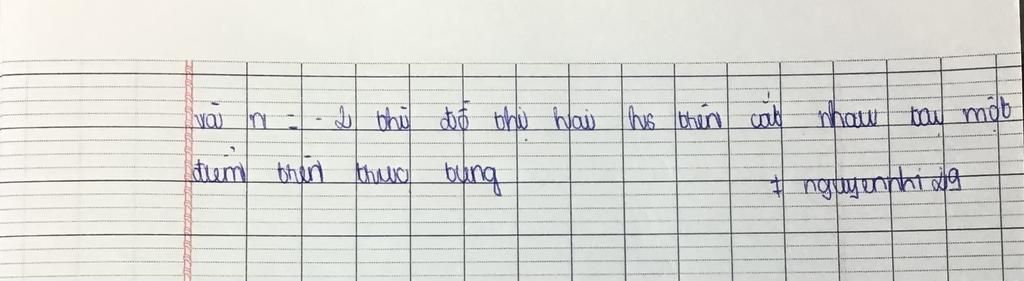 và n = -2 thì đồ thị hai hs trên cắt nhau tại một
điểm trên trục tung
# nguyennhi29